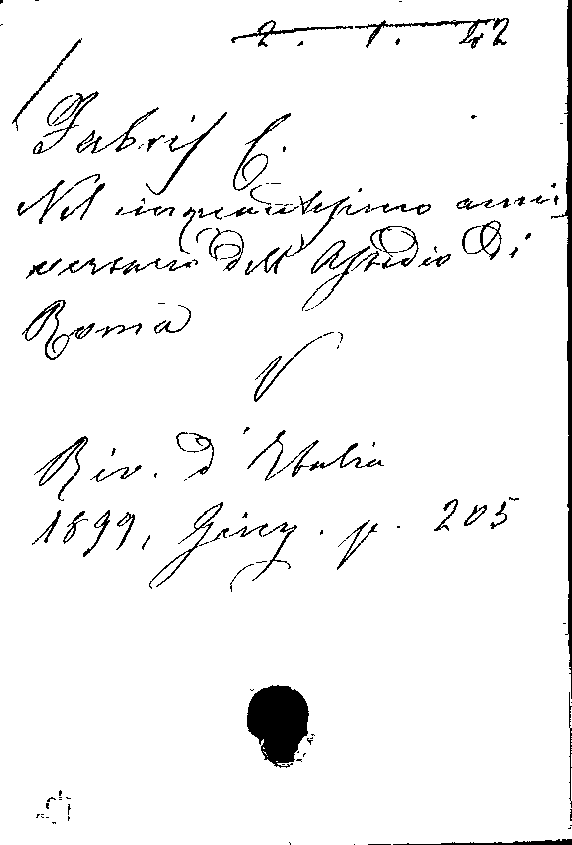 2. 1. 42
Fabris C.
Nel cinquantesimo anni-
versario dell' Assedio di
Roma
V
Riv. d' Italia
1899, Giug. p. 205